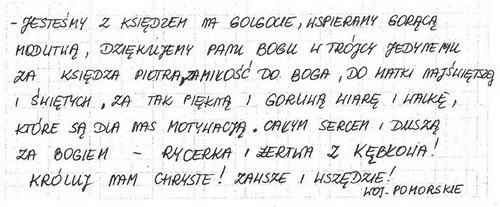 - JESTEŚMY Z KSIĘDZEM NA GOLGOCIE, WSPIERAMY GORĄCĄ
MODLITWĄ, DZIĘKUJEMY PANU BOGU W TRÓJCY JEDYNEMU
ZA KSIĘDZA PIOTRA, ZA MIŁOŚĆ DO BOGA, DO MATKI NAJŚWIĘTSZEJ
I ŚWIĘTYCH, ZA TAK PIĘKNĄ I GORLIWĄ WIARĘ I WALKĘ,
KTÓRE SĄ DLA NAS MOTYWACJĄ. CAŁYM SERCEM I DUSZĄ
ZA BOGIEM - RYCERKA I ŻERTWA Z KĘBŁOWA!
KRÓLUJ NAM CHRYSTE! ZAWSZE I WSZĘDZIE!
WOJ. POMORSKIE